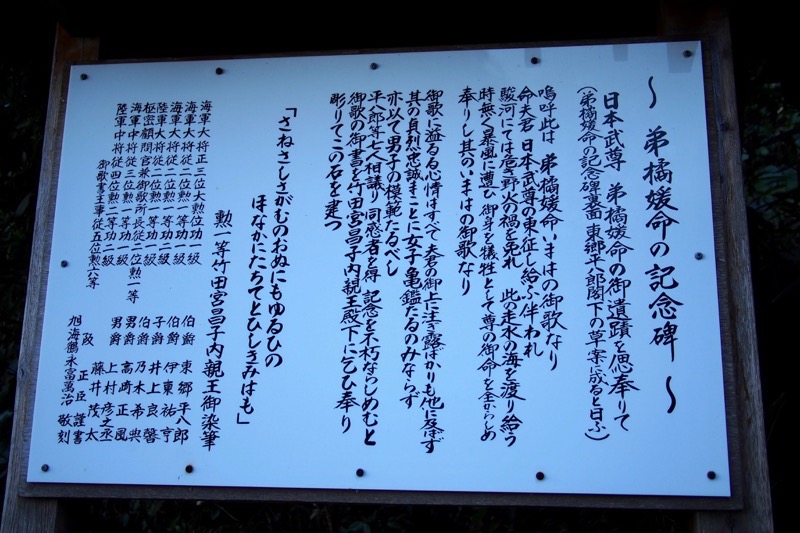 ～ 弟橘媛命の記念碑 ～
日本武尊 弟橘媛命の御遺蹟を偲奉りて
（弟橘媛命の記念碑裏面 東郷平八郎閣下の草案に成ると日ふ）
嗚呼此は 弟橘媛命いまはの御歌なり
命夫君 日本武尊の東征し給ふに伴われ
駿河にては危き野火の禍を免れ 此の走水の海を渡り給う
時無く暴風に遭ひ 御身を犠牲として尊の御命を全からしめ
奉りし其のいまはの御歌なり
御歌に溢るる心情はすべて夫君の御上に注ぎ露ばかりも他に及ばず
其の貞烈忠誠まことに女子亀鑑たるのみならず
亦以て男子の模範たるべし
平八郎等七人相議り同感者を得 記念を不朽ならしめむと
御歌の御書を竹田宮昌子内親王殿下に乞ひ奉り
彫りてこの石を建つ
「さねさしさがむのおぬにもゆるひの
ほなかにたちてとひしきみはも」
勲一等竹田宮昌子内親王御染筆
海軍大将正三位大勲位功一級 伯爵 東郷平八郎
海軍大将従二位勲一等功一級 伯爵 伊東祐亨
陸軍大将従二位勲一等功二級 子爵 井上良馨
陸軍大将従二位勲一等功一級 伯爵 乃木希典
枢密顧問官兼御歌所長従二位勲一等 男爵 高崎正風
海軍中将従三位勲一等功一級 男爵 上村彦之丞
陸軍中将従四位勲二等功二級 藤井茂太
御歌書主事従五位勲六等 阪正臣 謹書
旭海鴨永富萬治 敬刻